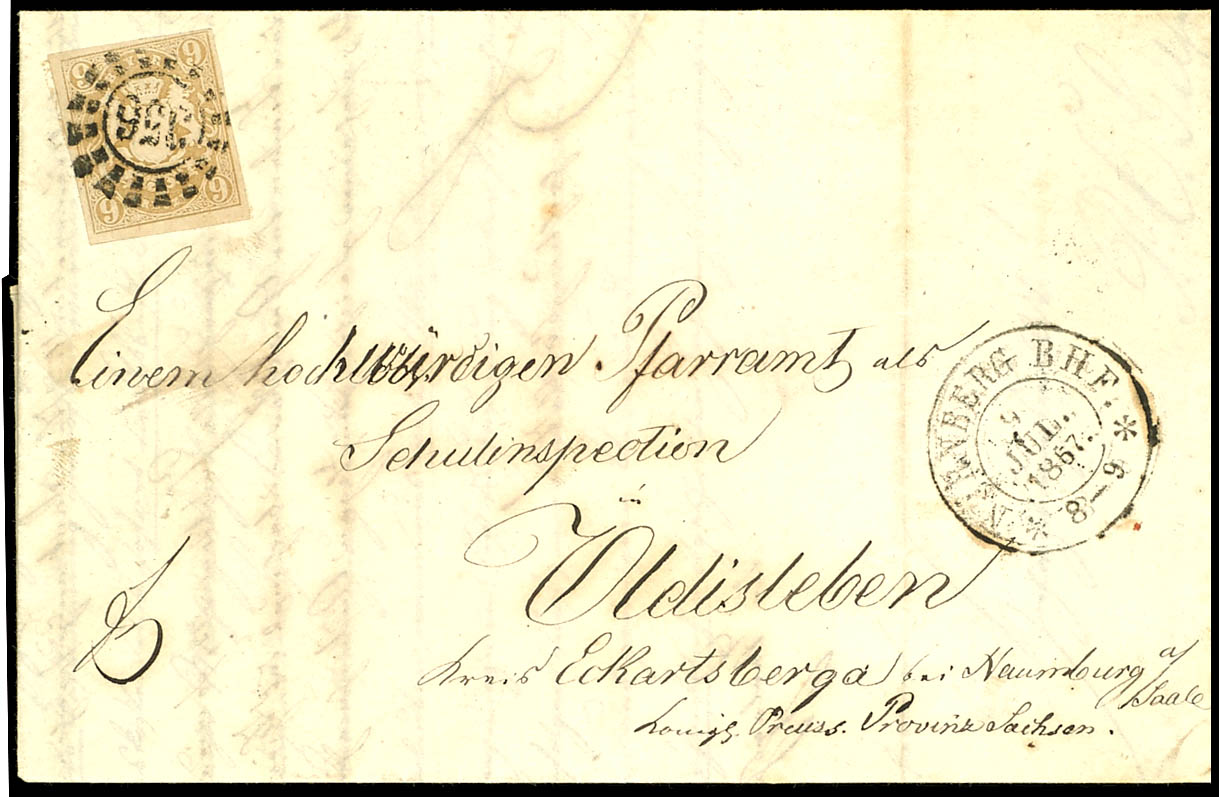 9 9
356
9 9
Einem hochwürdigen Pfarramt als
Schulinspection
in
Oldisleben
Kreis Eckartsberga bei Naumburg a/
Saale
Königl. Preuss. Provinz Sachsen.
NÜRNBERG BHF. * 8–9 *
9
JUL.
1867.